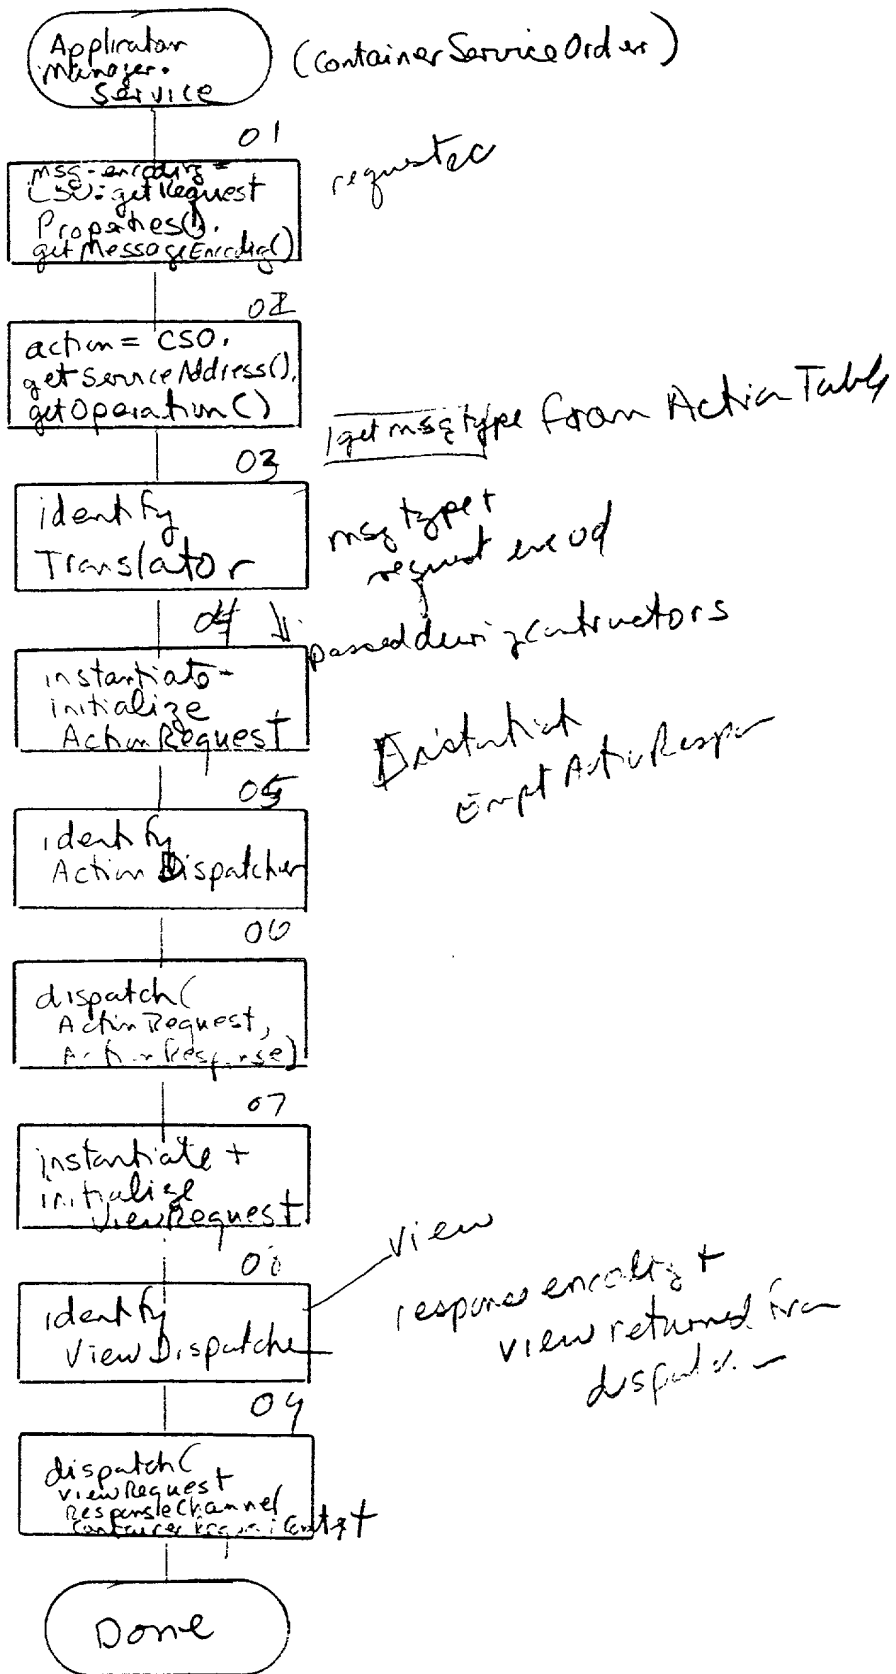 Application
Manager.
Service
(ContainerServiceOrder)
01
msg-encoding =
CSO.getRequest
Properties().
getMessageEncoding()
02
action = CSO.
getServiceAddress().
getOperation()
get msg type from Action Table
03
identify
Translator
msg type +
request
04
passed during
instantiate-
initialize
ActionRequest
05
identify
Action Dispatcher
06
dispatch(
ActionRequest,
ActionResponse)
07
instantiate +
initialize
ViewRequest
view
identify
ViewDispatche
response encoding +
view returned from
09
dispatch(
viewRequest
ResponseChannel
Done